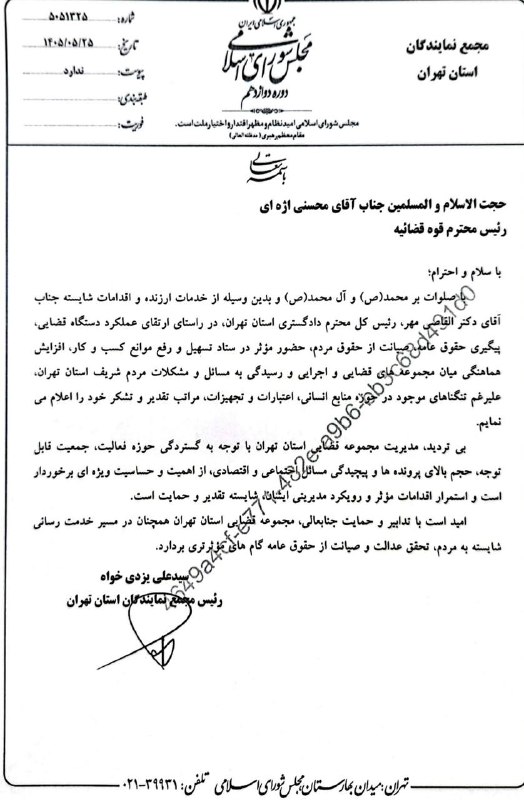 جمهوری اسلامی ایران
مجلس شورای اسلامی
دوره دوازدهم
مجلس شورای اسلامی امید نظام و مظهر اقتدار و اختیار ملت است.
مقام معظم رهبری (مدظله العالی)
مجمع نمایندگان
استان تهران
شماره: ۵۰۵۱۳۲۵
تاریخ: ۱۴۰۵/۰۵/۲۵
پیوست: ندارد
طبقه‌بندی:
فوریت:
باسمه تعالی
حجت الاسلام و المسلمین جناب آقای محسنی اژه ای
رئیس محترم قوه قضائیه
با سلام و احترام؛
با صلوات بر محمد(ص) و آل محمد(ص) و بدین وسیله از خدمات ارزنده و اقدامات شایسته جناب
آقای دکتر القاصی مهر، رئیس کل محترم دادگستری استان تهران، در راستای ارتقای عملکرد دستگاه قضایی،
پیگیری حقوق عامه، صیانت از حقوق مردم، حضور مؤثر در ستاد تسهیل و رفع موانع کسب و کار، افزایش
هماهنگی میان مجموعه های قضایی و اجرایی و رسیدگی به مسائل و مشکلات مردم شریف استان تهران،
علیرغم تنگناهای موجود در حوزه منابع انسانی، اعتبارات و تجهیزات، مراتب تقدیر و تشکر خود را اعلام می
نمایم.
بی تردید، مدیریت مجموعه قضایی استان تهران با توجه به گستردگی حوزه فعالیت، جمعیت قابل
توجه، حجم بالای پرونده ها و پیچیدگی مسائل اجتماعی و اقتصادی، از اهمیت و حساسیت ویژه ای برخوردار
است و استمرار اقدامات مؤثر و رویکرد مدیریتی ایشان، شایسته تقدیر و حمایت است.
امید است با تدابیر و حمایت جنابعالی، مجموعه قضایی استان تهران همچنان در مسیر خدمت رسانی
شایسته به مردم، تحقق عدالت و صیانت از حقوق عامه گام های مؤثرتری بردارد.
سیدعلی یزدی خواه
رئیس مجمع نمایندگان استان تهران
تهران: میدان بهارستان مجلس شورای اسلامی تلفن: ۳۹۹۳۱-۰۲۱